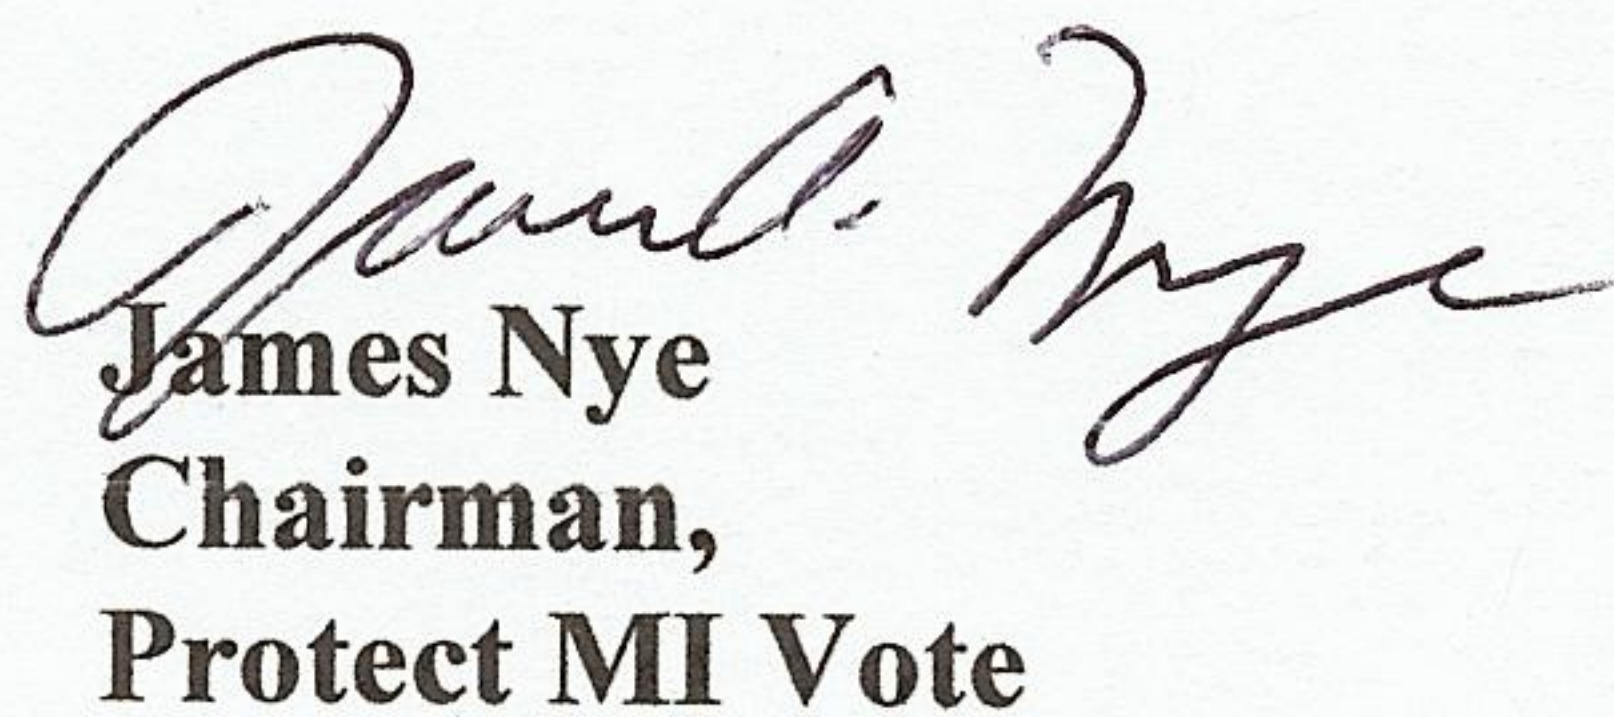 James Nye
James Nye
Chairman,
Protect MI Vote